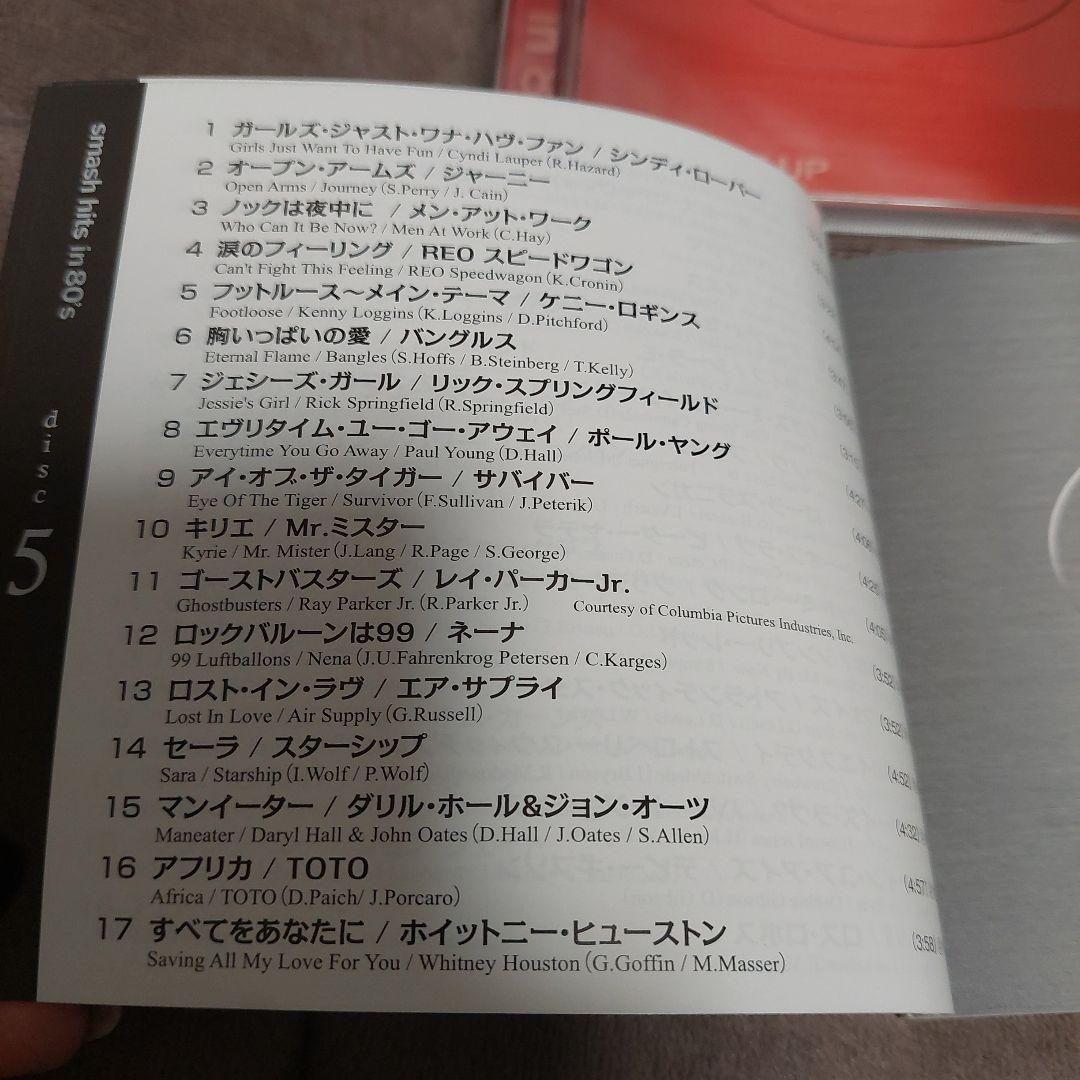 smash hits in 80's
disc
5
1 ガールズ・ジャスト・ワナ・ハヴ・ファン / シンディ・ローパー
Girls Just Want To Have Fun / Cyndi Lauper (R.Hazard)
2 オープン・アームズ / ジャーニー
Open Arms / Journey (S.Perry / J. Cain)
3 ノックは夜中に / メン・アット・ワーク
Who Can It Be Now? / Men At Work (C.Hay)
4 涙のフィーリング / REO スピードワゴン
Can't Fight This Feeling / REO Speedwagon (K.Cronin)
5 フットルース〜メイン・テーマ / ケニー・ロギンス
Footloose / Kenny Loggins (K.Loggins / D.Pitchford)
6 胸いっぱいの愛 / バングルス
Eternal Flame / Bangles (S.Hoffs / B.Steinberg / T.Kelly)
7 ジェシーズ・ガール / リック・スプリングフィールド
Jessie's Girl / Rick Springfield (R.Springfield)
8 エヴリタイム・ユー・ゴー・アウェイ / ポール・ヤング
Everytime You Go Away / Paul Young (D.Hall)
9 アイ・オブ・ザ・タイガー / サバイバー
Eye Of The Tiger / Survivor (F.Sullivan / J.Peterik)
10 キリエ / Mr.ミスター
Kyrie / Mr. Mister (J.Lang / R.Page / S.George)
11 ゴーストバスターズ / レイ・パーカーJr.
Ghostbusters / Ray Parker Jr. (R.Parker Jr.) Courtesy of Columbia Pictures Industries, Inc.
12 ロックバルーンは99 / ネーナ
99 Luftballons / Nena (J.U.Fahrenkrog Petersen / C.Karges)
13 ロスト・イン・ラヴ / エア・サプライ
Lost In Love / Air Supply (G.Russell)
14 セーラ / スターシップ
Sara / Starship (I.Wolf / P.Wolf)
15 マンイーター / ダリル・ホール&ジョン・オーツ
Maneater / Daryl Hall & John Oates (D.Hall / J.Oates / S.Allen)
(4:32)
16 アフリカ / TOTO
Africa / TOTO (D.Paich/ J.Porcaro)
(4:57)
17 すべてをあなたに / ホイットニー・ヒューストン
Saving All My Love For You / Whitney Houston (G.Goffin / M.Masser)
(3:58)